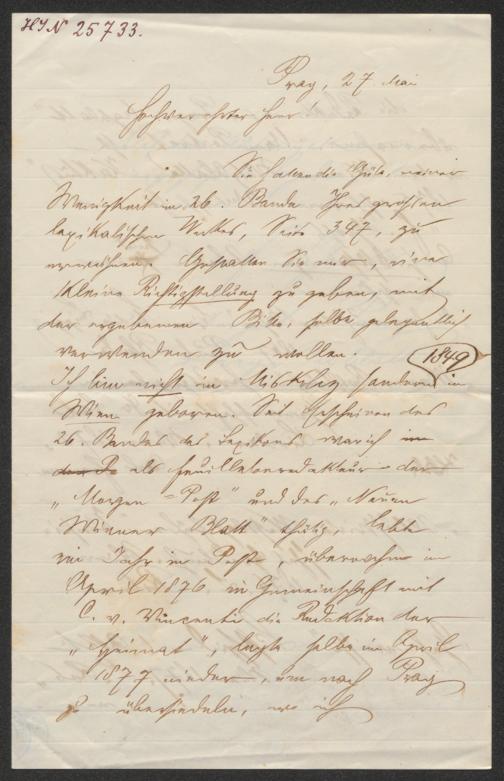 HIN 25733.
Prag, 27 Mai
Hochverehrter Herr!
Sie hatten die Güte, meiner
Wenigkeit im 26. Bande Ihres großen
lexikalischen Werkes, Seite 347, zu
erwähnen. Gestatten Sie mir, eine
kleine Richtigstellung zu geben, mit
der ergebenen Bitte, selbe gelegentlich
verwenden zu wollen.
1849
Ich bin nicht in Miskolcz sondern in
Wien geboren. Seit Erscheinen des
26. Bandes des Lexikons war ich im
als Feuilletonredakteur der
„Morgen-Post" und des „Neuen
Wiener Blatt" thätig, lebte
ein Jahr in Pest, übernahm im
April 1876 in Gemeinschaft mit
C. v. Vincenti die Redaktion der
„Heimat", legte selbe im April
1877 nieder, um nach Prag
zu übersiedeln, wo ich